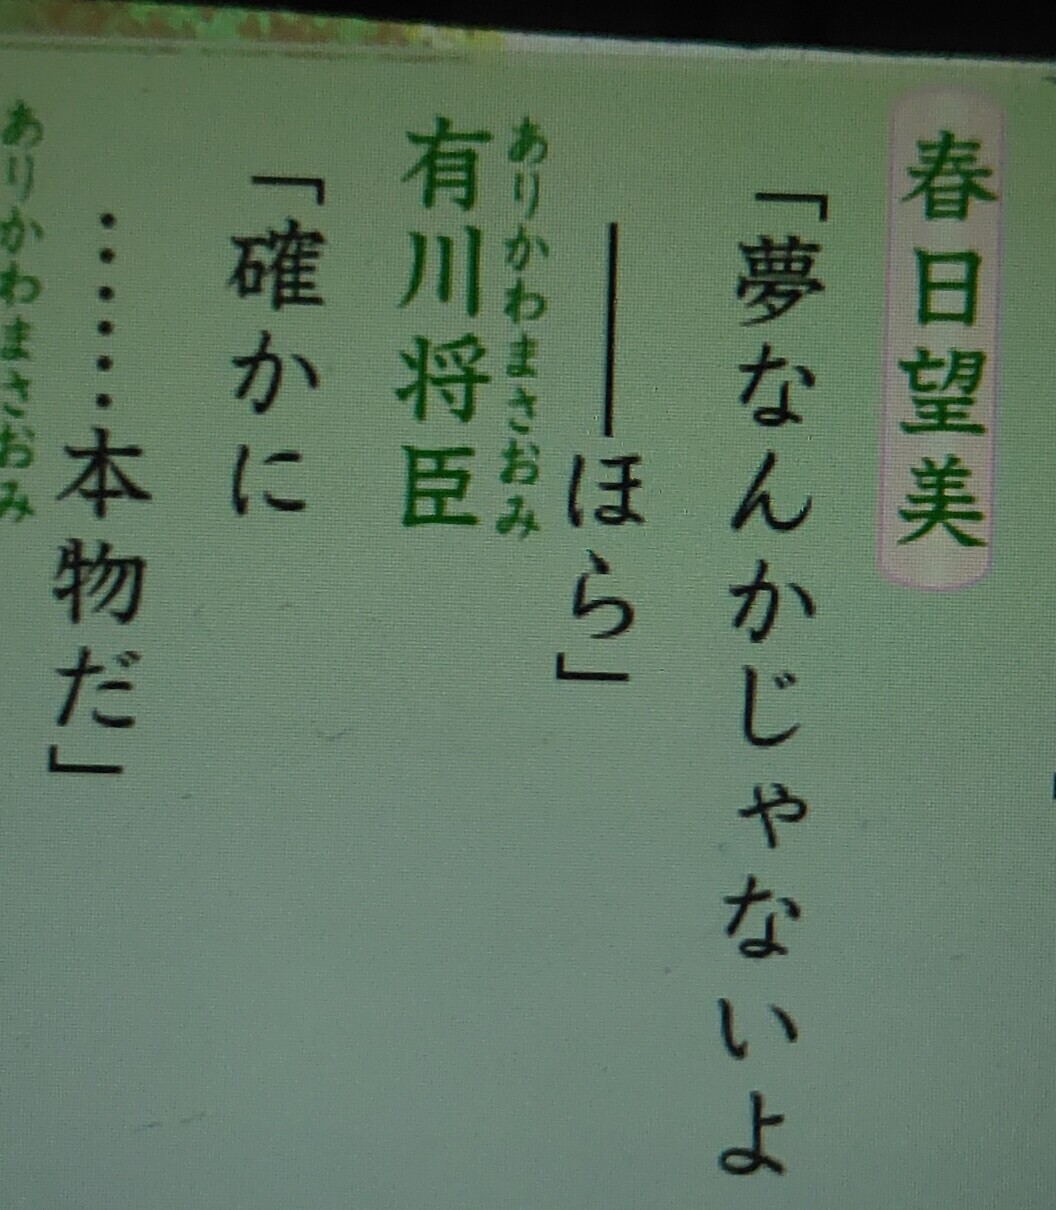 春日望美
「夢なんかじゃないよ
――ほら」
ありかわまさおみ
有川将臣
「確かに
……本物だ」
ありかわまさおみ